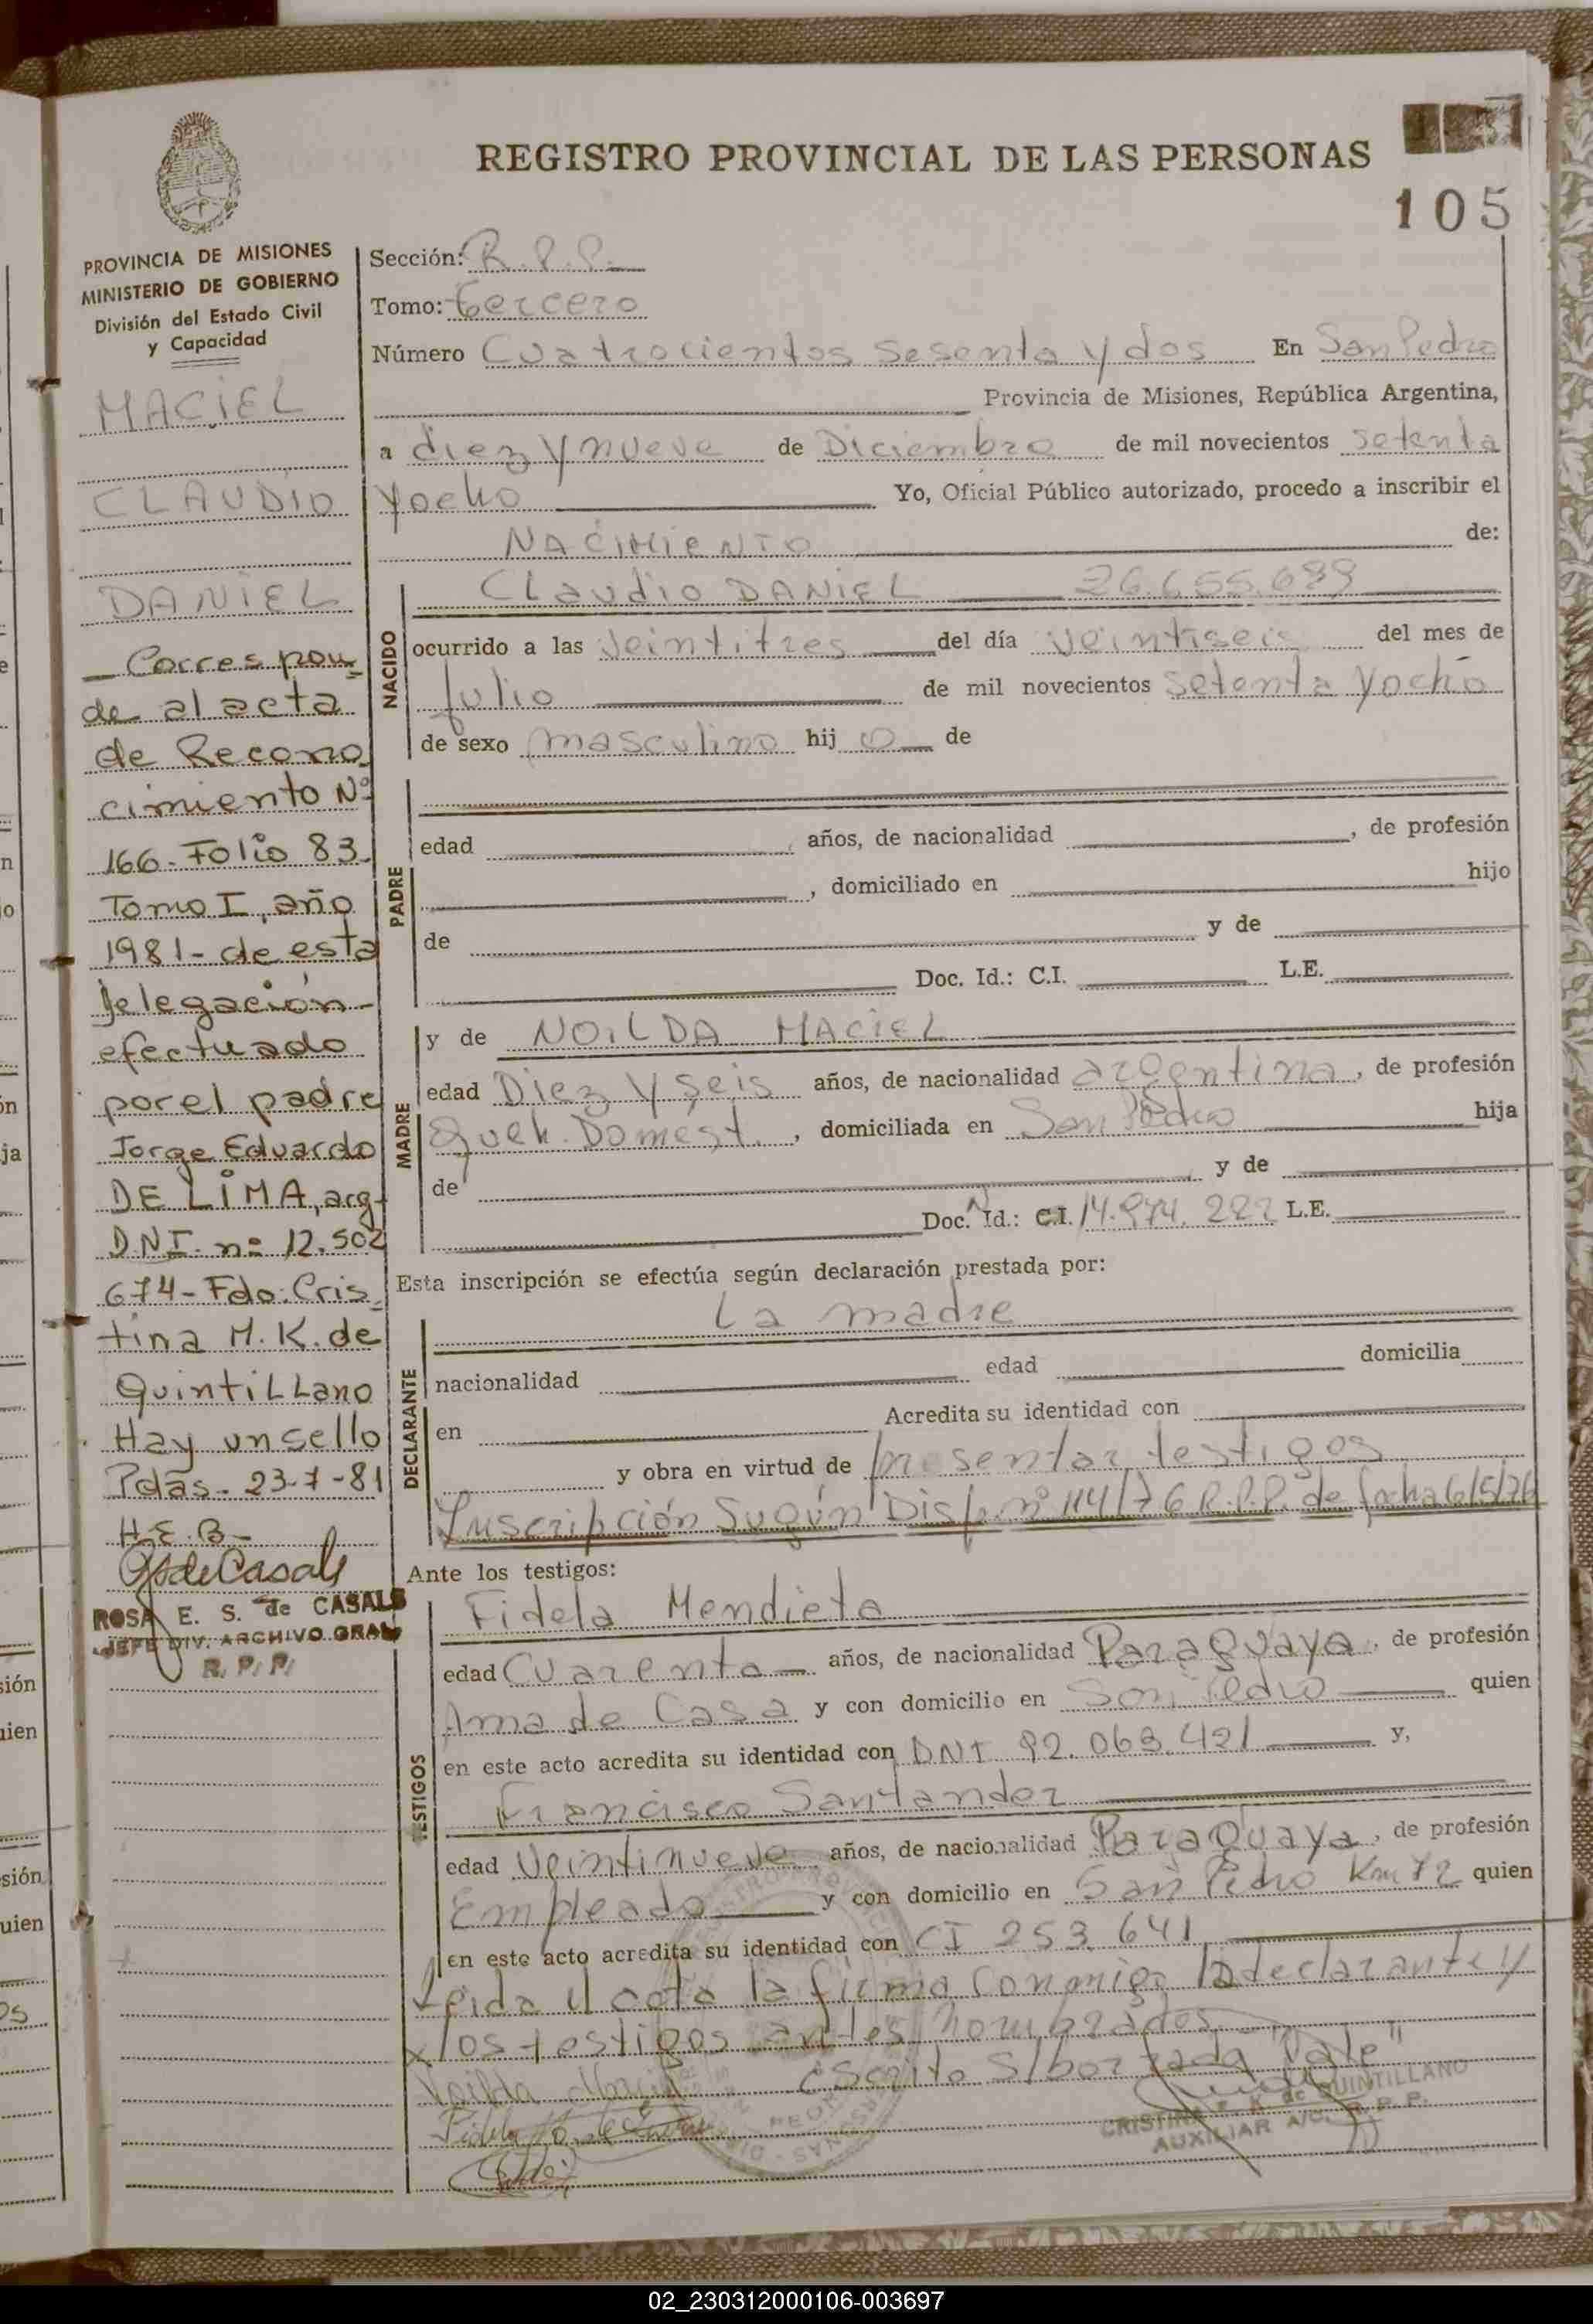 REGISTRO PROVINCIAL DE LAS PERSONAS
105
PROVINCIA DE MISIONES
MINISTERIO DE GOBIERNO
División del Estado Civil
y Capacidad
MACIEL
CLAUDIO
DANIEL
_ Correspon
de al acta
de Recono
cimiento Nº
166-Folio 83
Tomo I, año
1981- de esta
delegación-
efectuado
por el padre
Jorge Eduardo
DE LIMA, arg-
DNI. nº 12.502
674- Fdo: Cris
tina M. K. de
Quintillano
Hay un sello
Pdas- 23-7-81
H.E.B-
ROSA E. S. de CASALS
JEFE DIV. ARCHIVO GRAL
R. P. P.
Sección: R.P.P.
Tomo: tercero
Número Cuatrocientos sesenta y dos En San Pedro
Provincia de Misiones, República Argentina,
a diez y nueve de Diciembre de mil novecientos setenta
y ocho Yo, Oficial Público autorizado, procedo a inscribir el
NACIMIENTO de:
NACIDO
Claudio DANIEL 26.655.699
ocurrido a las veintitres del día veintiseis del mes de
Julio de mil novecientos setenta y ocho
de sexo masculino hij o de
PADRE
edad años, de nacionalidad , de profesión
, domiciliado en hijo
de y de
Doc. Id.: C.I. L.E.
MADRE
y de NOILDA MACIEL
edad Diez y seis años, de nacionalidad argentina, de profesión
Queh. Domest. , domiciliada en San Pedro hija
de y de
Doc. N Id.: C.I. 14.974.222 L.E.
Esta inscripción se efectúa según declaración prestada por:
DECLARANTE
La madre
nacionalidad edad domicilia
en Acredita su identidad con
y obra en virtud de presentar testigos
Inscripción Según Disp. nº 114/76 R.P.P. de fecha 6/5/76
Ante los testigos:
TESTIGOS
Fidela Mendieta
edad Cuarenta años, de nacionalidad Paraguaya, de profesión
Ama de Casa y con domicilio en San Pedro quien
en este acto acredita su identidad con DNI 92.063.421 y,
Francisco Santander
edad Veintinueve años, de nacionalidad Paraguaya, de profesión
Empleado y con domicilio en San Pedro Km 72 quien
en este acto acredita su identidad con CI 253.641
Leida el acta la firma conmigo la declarante y
x los testigos antes nombrados.-
escrito s/borrada "Vale"
Noilda Maciel
CRISTINA K de QUINTILLANO
AUXILIAR A/C. R. P. P.
02_230312000106-003697